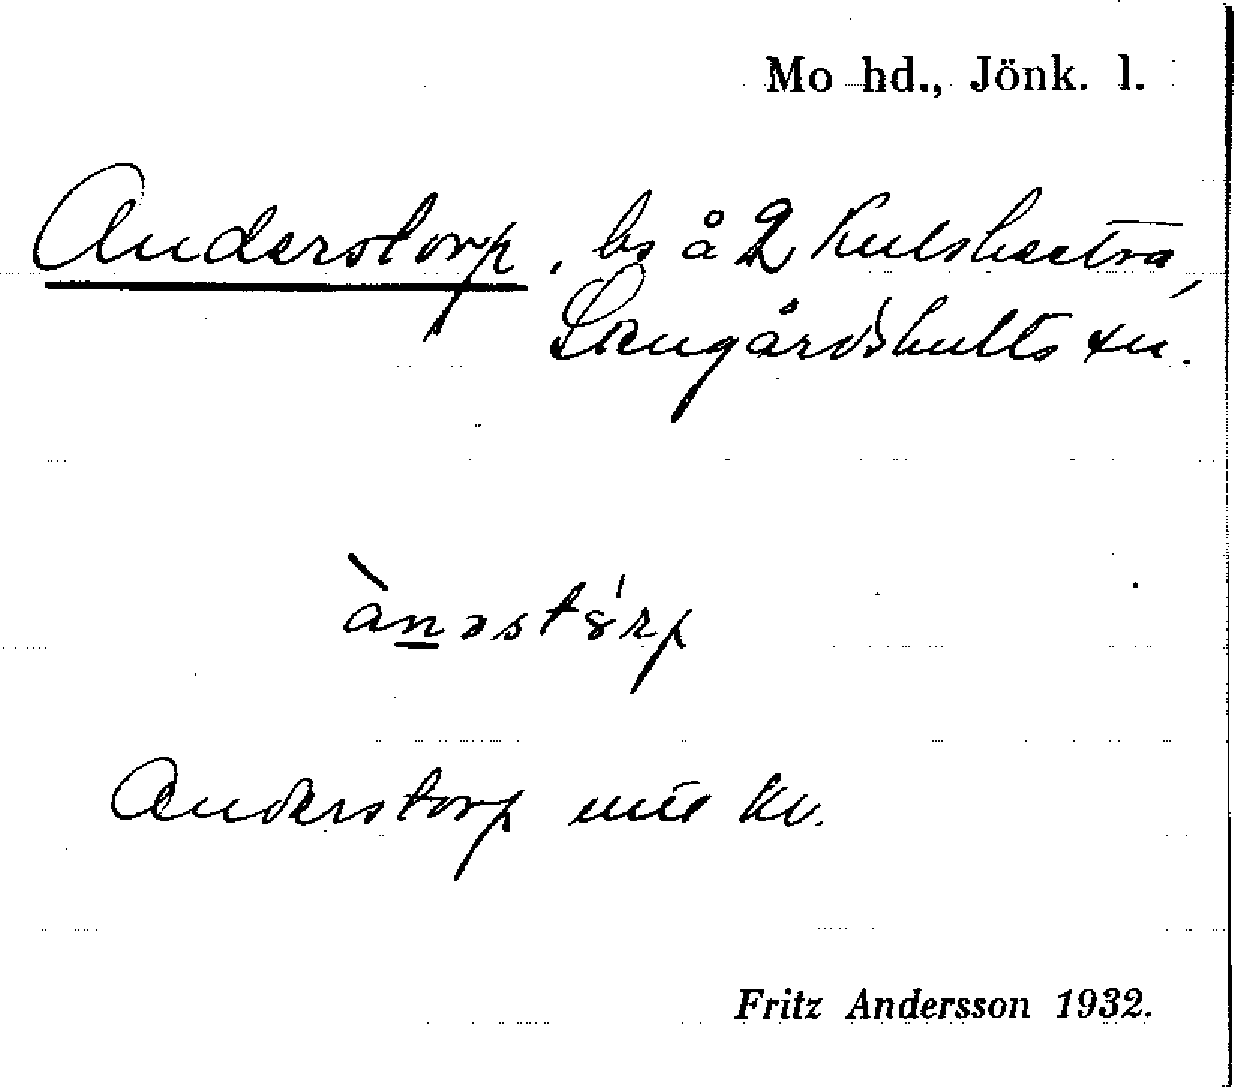 Mo hd., Jönk. l.
Anderstorp, ls å 2 Kulsbestra,
Sangårdshults sn.
ànəstórp
Anderstorp
Fritz Andersson 1932.